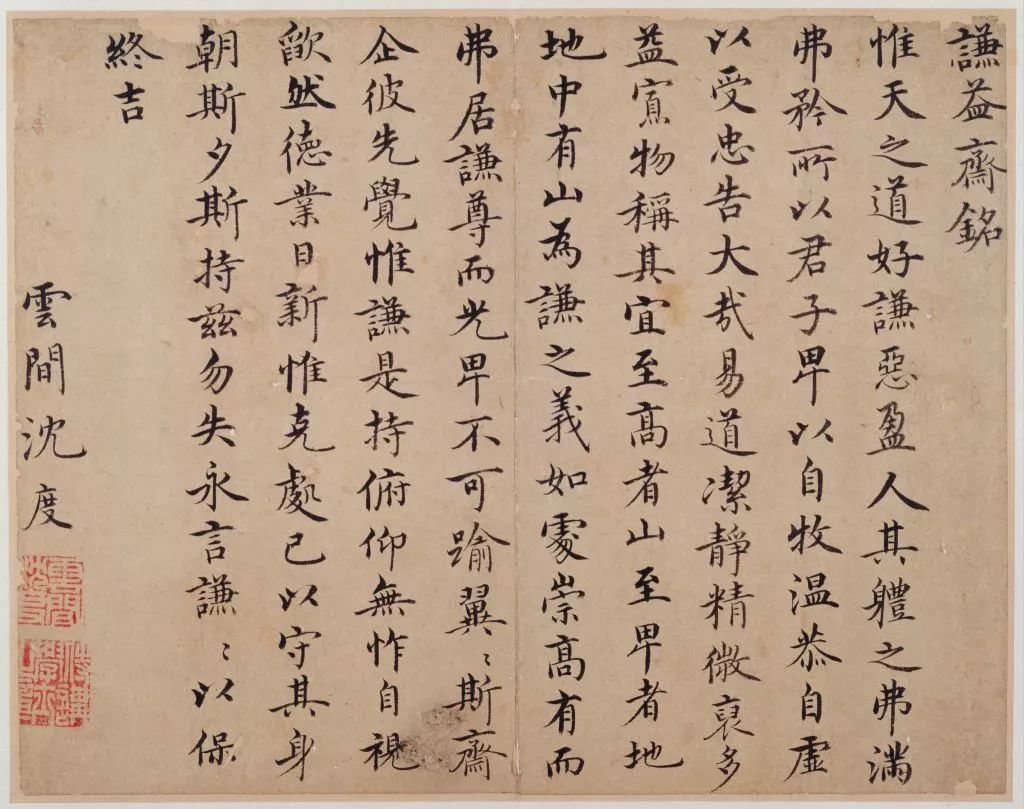 謙益齋銘
惟天之道好謙惡盈人其軆之弗滿
弗矜所以君子卑以自牧温恭自虛
以受忠告大哉易道潔靜精微裒多
益寡物稱其宜至高者山至卑者地
地中有山為謙之義如處崇高有而
弗居謙尊而光卑不可踰翼〻斯齋
企彼先覺惟謙是持俯仰無怍自視
欿然德業日新惟克處己以守其身
朝斯夕斯持兹勿失永言謙〻以保
終吉
雲間沈度